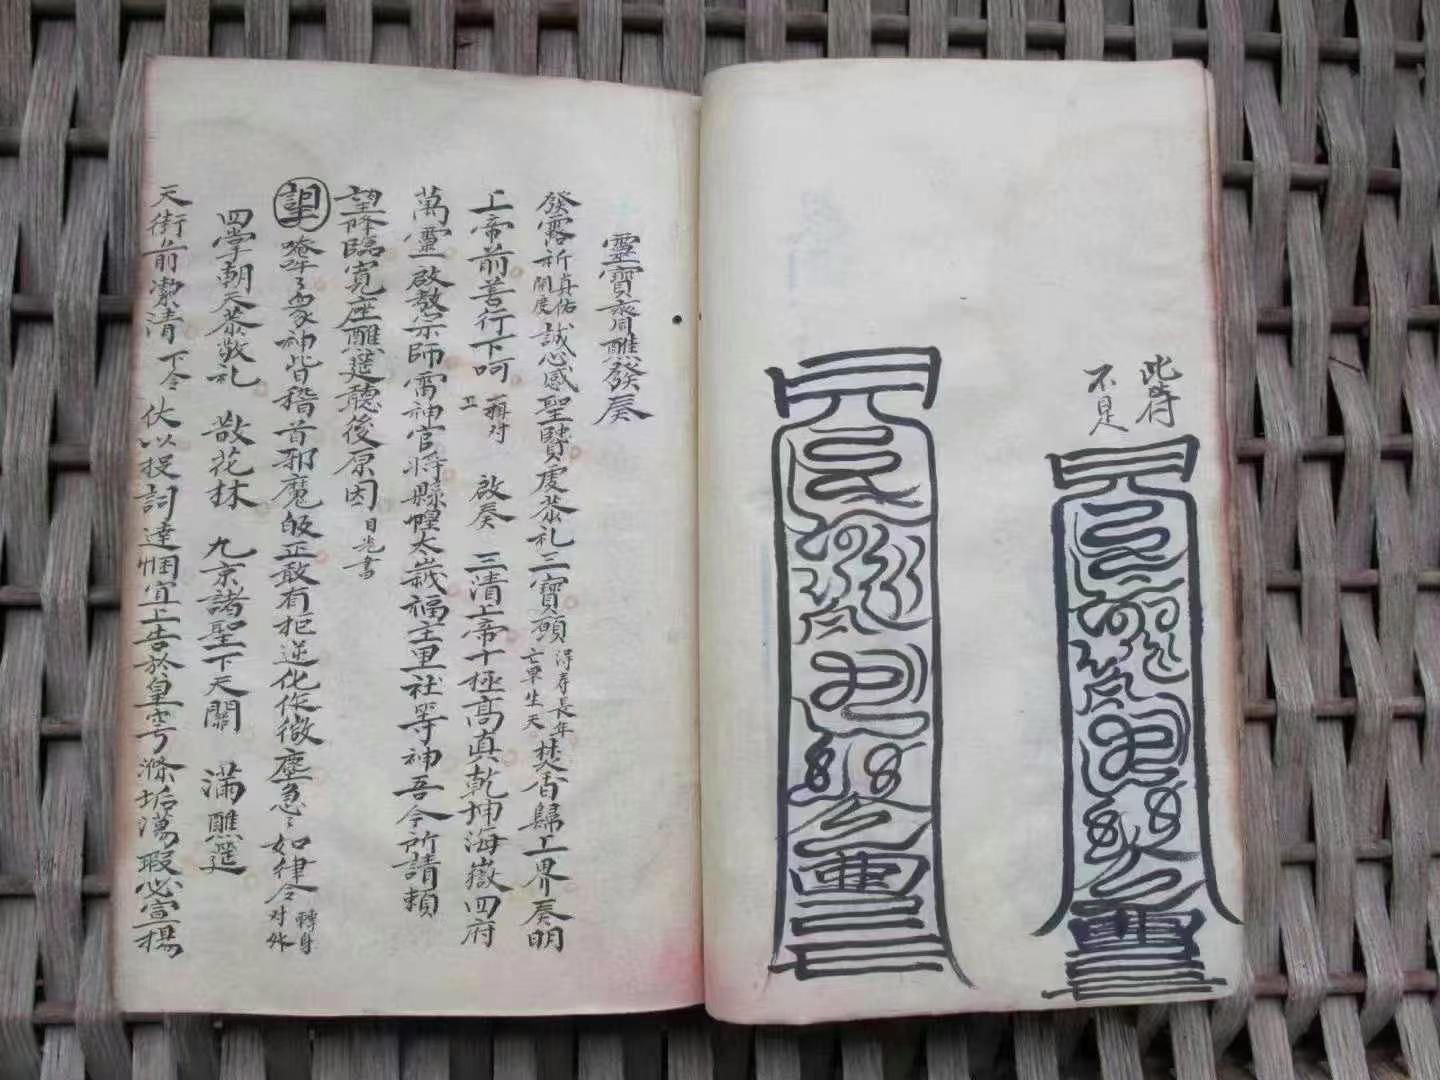 此符
不足
靈寶齋醮發奏
發露祈真佑開度誠心感聖賢虔恭礼三寶願得寿長年亡早生天焚香歸上界奏明
上帝前善行下呵 啟奏 三清上帝十極高真乾坤海嶽四府
萬靈啟教宗師雷神官将縣惶太歲福主里社等神吾今所請頼
望降臨寬座醮筵聽後原因 日光書
唵吽々衆神皆稽首邪魔皈正敢有拒逆化作微塵急々如律令 轉身对外
四学朝天恭敬礼 散花林 九京諸聖下天關 满醮筵
天街前潔清 下令 伏以投詞達悃宜上告於皇穹滌垢蕩瑕必宣揚